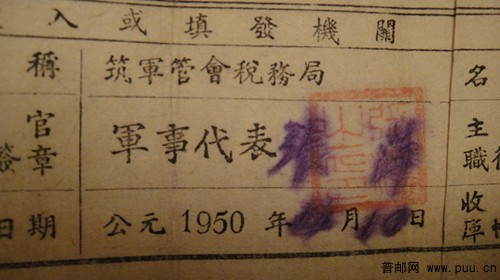 入或填發機關
稱 筑軍管會稅務局 名
官章 軍事代表 主職
簽 收庫
日期 公元1950年 月10日
普邮网 www.puu.cn